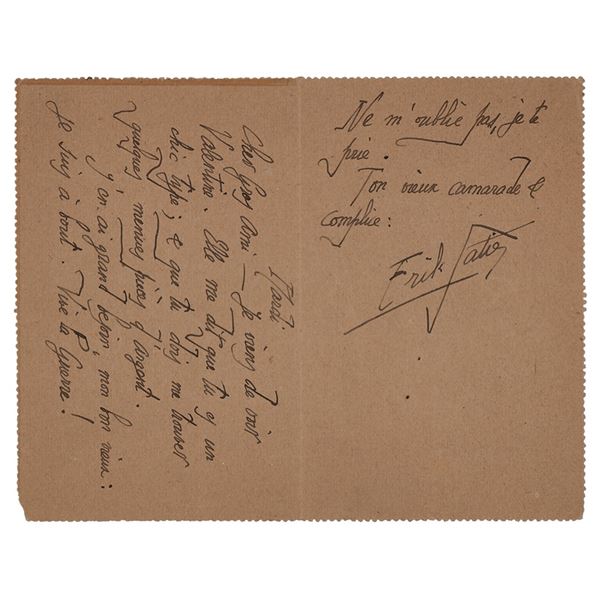 Mardi
Cher Gros Ami — Je viens de voir
Valentine. Elle me dit que tu es un
chic type; & que tu dois me trouver
quelques menues pièces d'argent.
J'en ai grand besoin, mon bon vieux:
je suis à bout. Vive la Guerre!
Ne m'oublie pas, je te
prie.
Ton vieux camarade &
complice:
Erik Satie